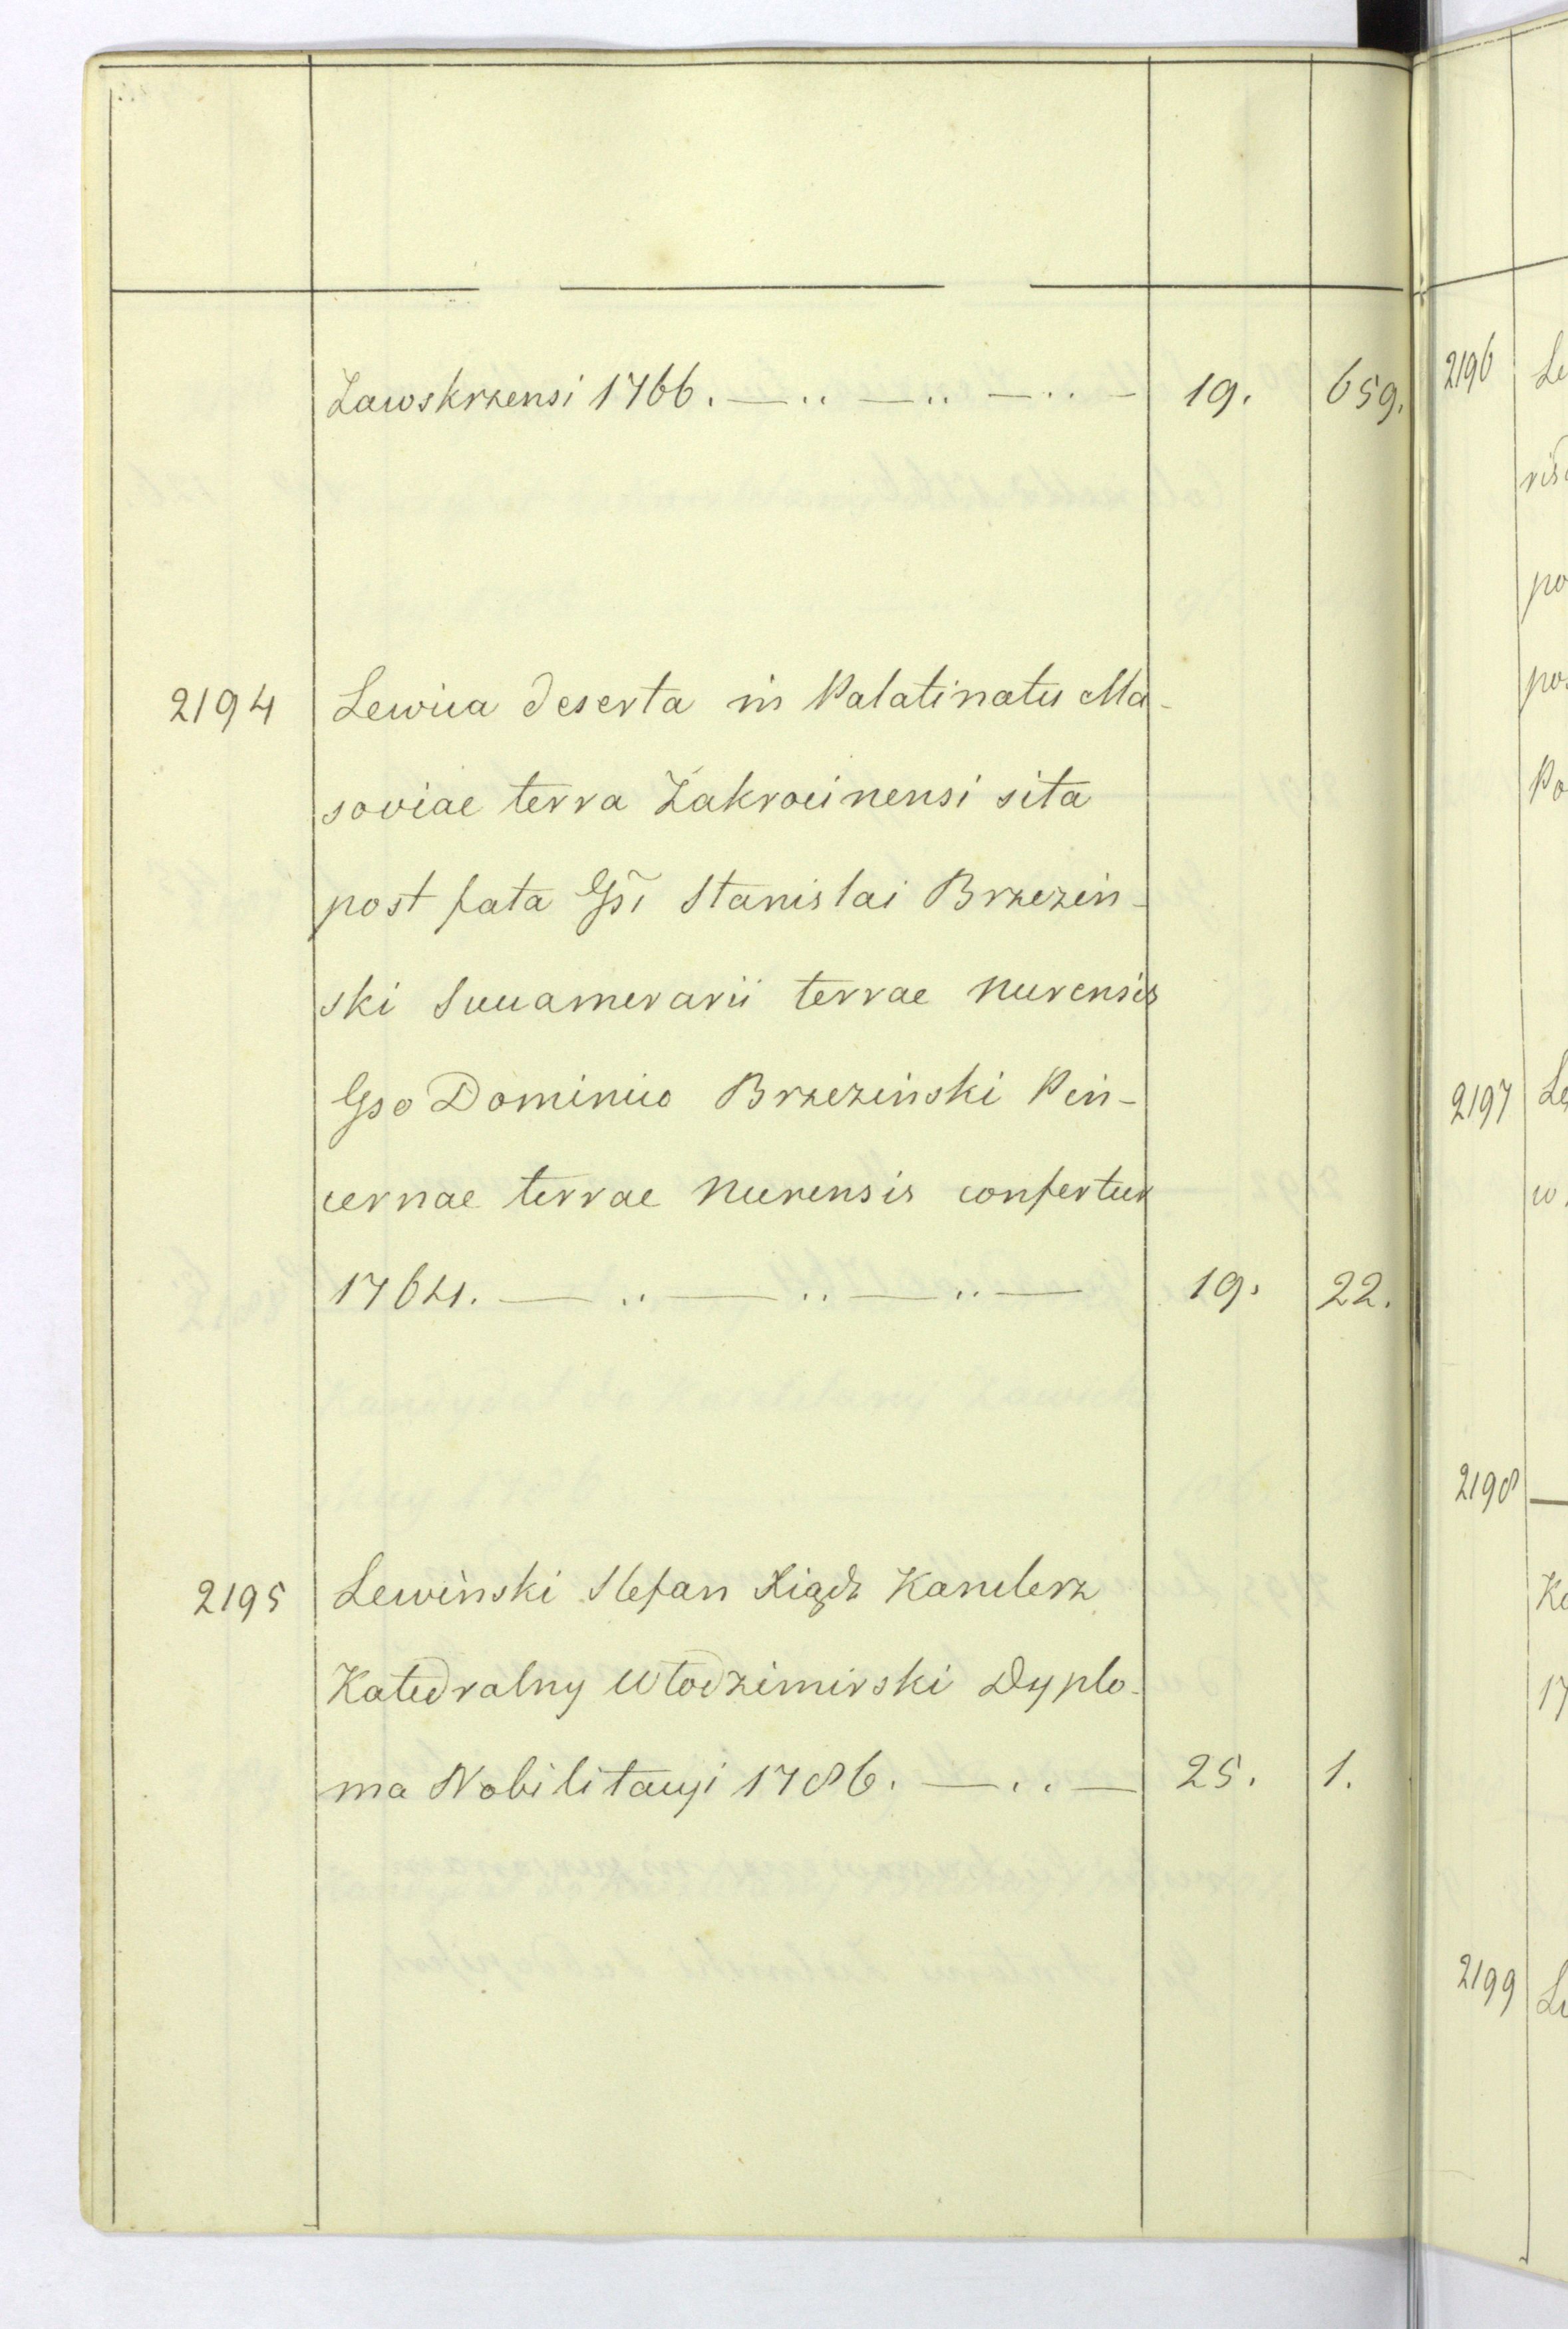 Zawskrzensi 1766. — .. — .. — .. — 19. 659.
2194 Lewica deserta in Palatinatu Ma-
soviae terra Zakrocinensi sita
post fata Gsi Stanislai Brzezin-
ski Succamerarii terrae Nurensis
Gso Dominico Brzezinski Pin-
cernae terrae Nurensis confertur
1764. — .. — .. — .. — 19. 22.
2195 Lewiński Stefan Xiądz Kanclerz
Katedralny Włodzimirski Dyplo-
ma Nobilitacyi 1786. — .. — 25. 1.
2196 Le
po
po
Po
2197 Le
w
2198 —
Ka
17
2199